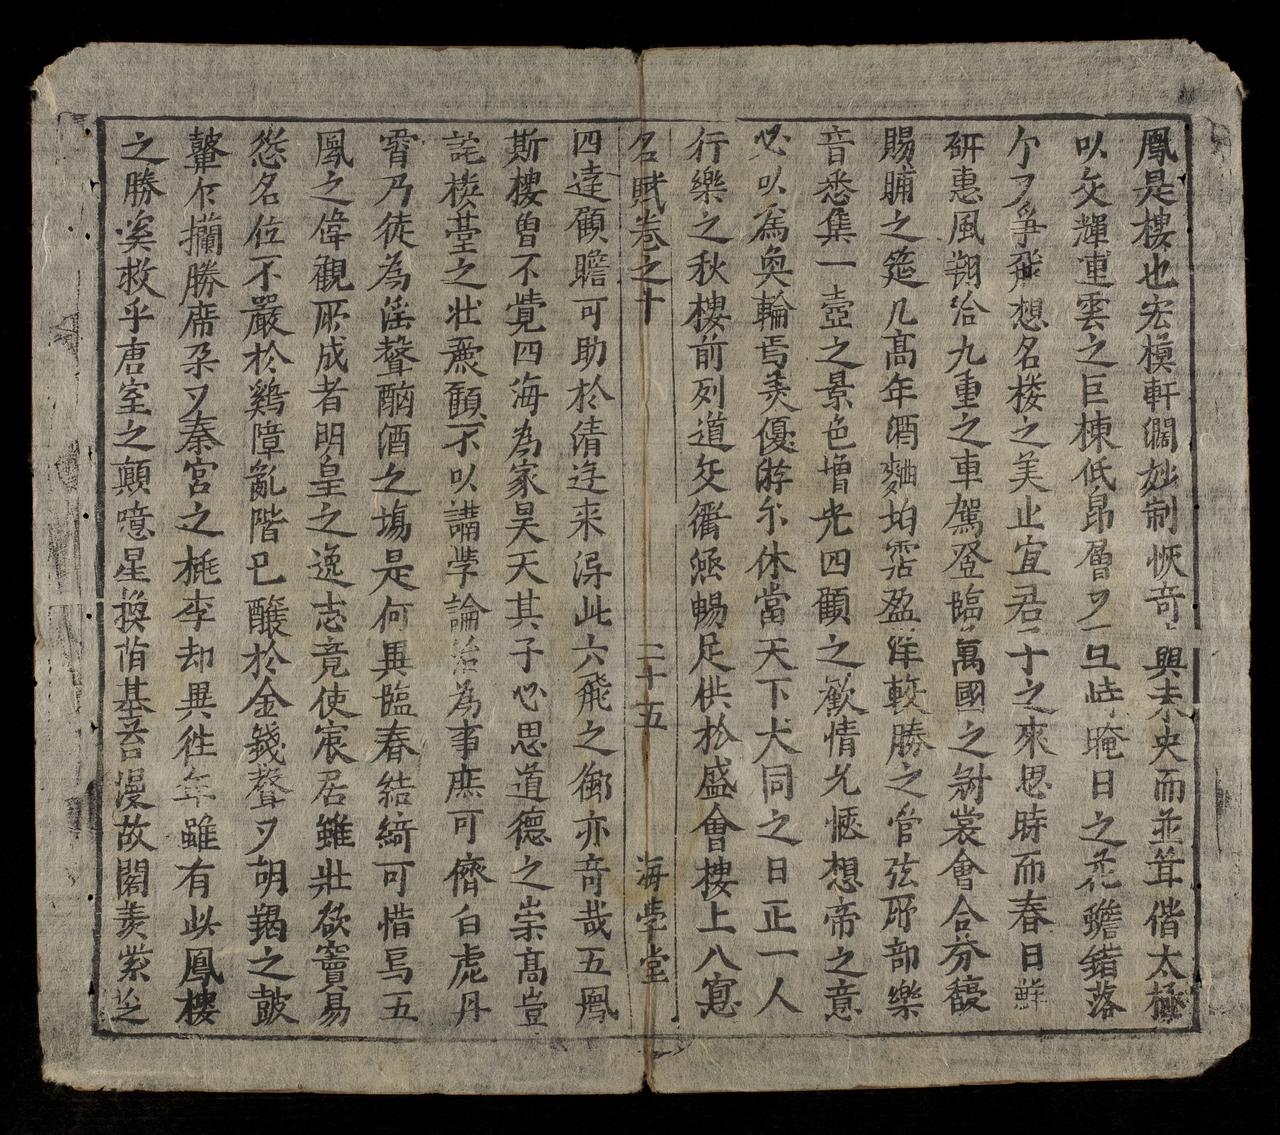 鳳是樓也宏模軒濶妙制恢奇興未央而並茸偕太極
以交輝連雲之巨棟低昂層〻旦時晻日之花甍鏤落
个〻爭飛想名楼之美止宜君子之來思時而春日鮮
研惠風翔洽九重之車駕登臨萬國之冠裳會合芬馥
賜脯之筵几髙年酒麯珀霑盈洋較勝之管弦所部樂
音悉集一壼之景色增光四顧之歡情允愜想帝之意
必以爲奐輪焉美優游尓休當天下大同之日正一人
行樂之秋樓前列道交衢綿暢足供於盛會樓上八窻
名賦卷之十 二十五 海學堂
四達顧瞻可助於清逢来淂此六飛之御亦竒哉五鳳
斯樓曽不覺四海為家昊天其子必思道德之崇髙豈
詫楼臺之壯麗顧不以講學論治為事庶可儕白虎丹
霄乃徒為淫聲酗酒之塲是何異臨春結綺可惜焉五
鳳之偉觀所成者明皇之逸志竟使宸居雖壯欲竇易
恣名位不嚴於鷄障亂階已釀於金錢聲〻胡羯之鼓
鼙乍攔勝席朶〻秦宮之桃李却異徃年雖有此鳳樓
之勝奚救乎唐室之顛噫星換菑基吾漫故閣羙紫芝